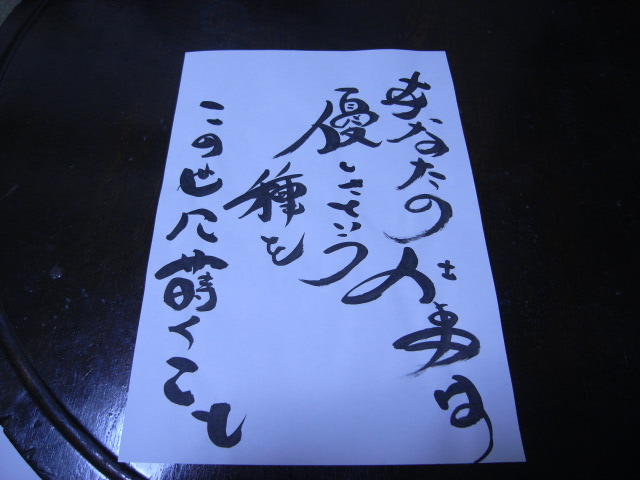 あなたの仕事は
優しさという
種を
この世に蒔くこと